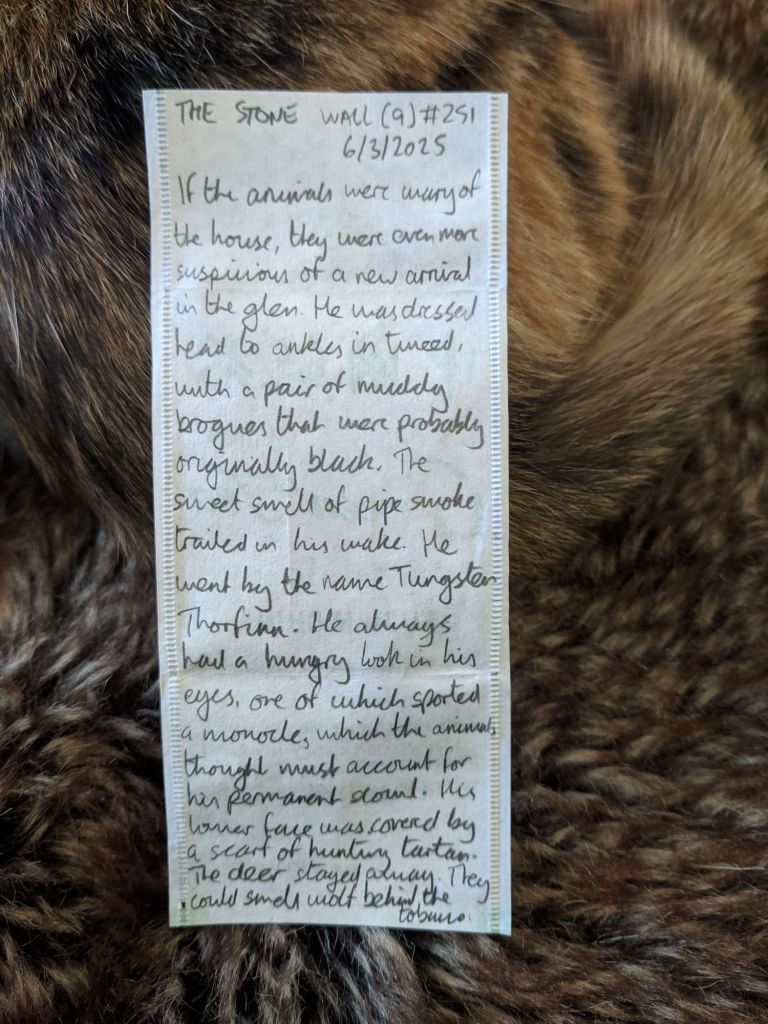 THE STONE WALL (9) #251
6/3/2025
If the animals were wary of
the house, they were even more
suspicious of a new arrival
in the glen. He was dressed
head to ankles in tweed,
with a pair of muddy
brogues that were probably
originally black. The
sweet smell of pipe smoke
trailed in his wake. He
went by the name Tungsten
Thorfinn. He always
had a hungry look in his
eyes, one of which sported
a monocle, which the animals
thought must account for
his permanent scowl. His
lower face was covered by
a scarf of hunting tartan.
The deer stayed away. They
could smell wolf behind the
tobacco.